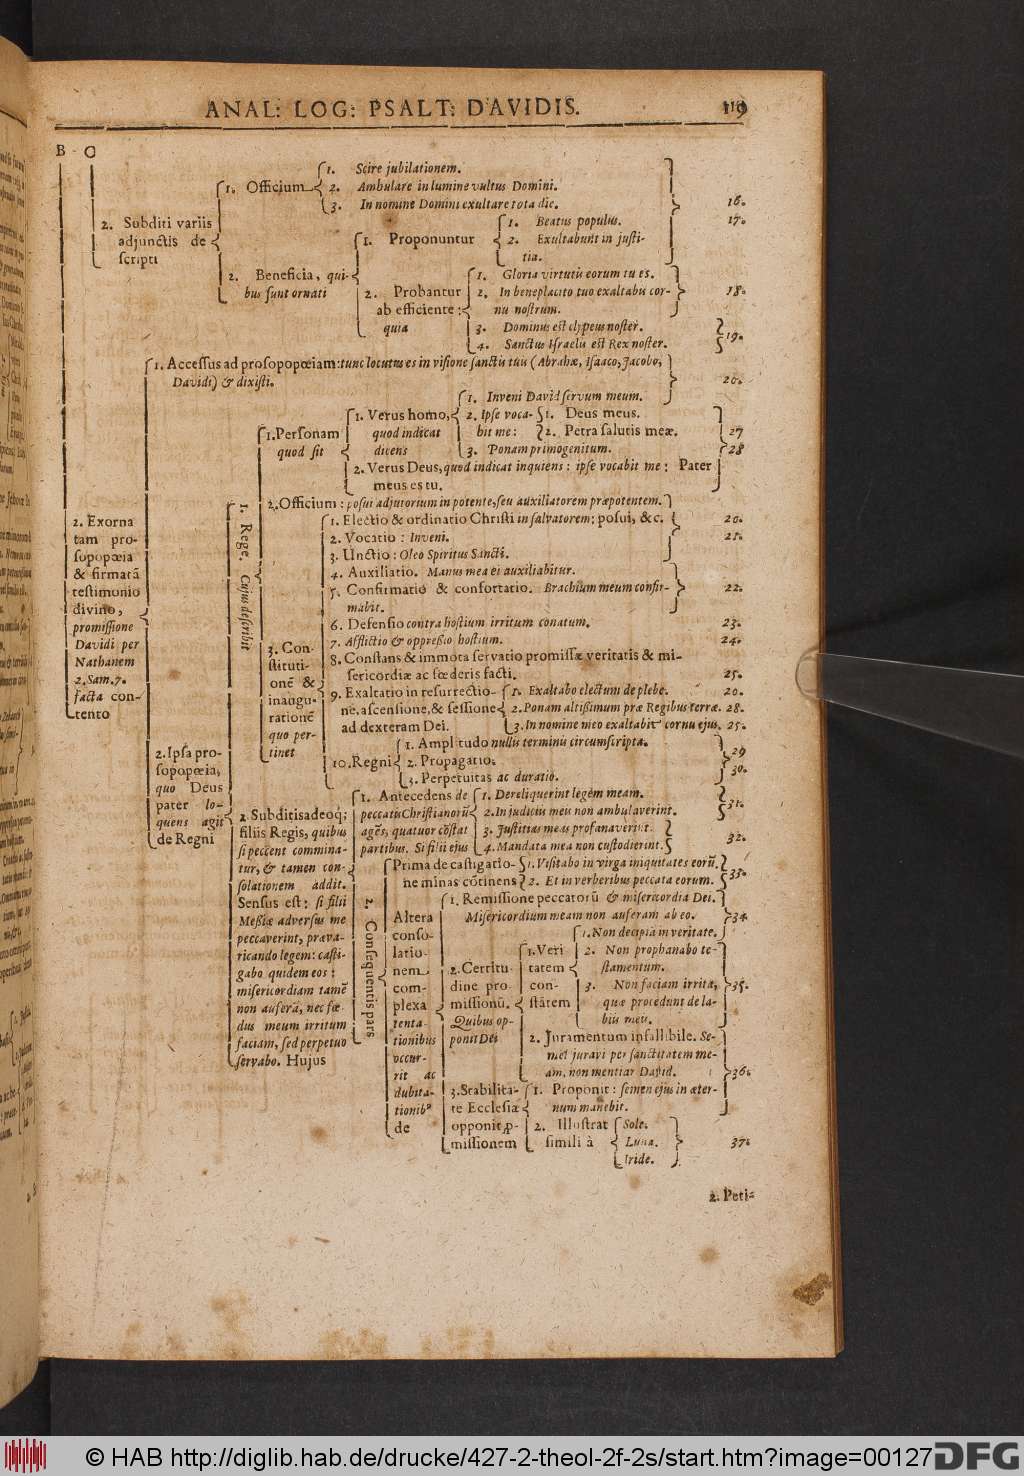 ANAL: LOG: PSALT: DAVIDIS. 119
B C
1. Scire jubilationem.
1. Officium 2. Ambulare in lumine vultus Domini.
3. In nomine Domini exultare tota die. 16.
2. Subditi variis 1. Beatus populus. 17.
adjunctis de 1. Proponuntur 2. Exultabunt in justi-
scripti tia.
2. Beneficia, qui- 1. Gloria virtutũ eorum tu es.
bus sunt ornati 2. Probantur 2. In beneplacito tuo exaltabis cor- 18.
ab efficiente: nu nostrum.
quia 3. Dominus est clypeus noster.
4. Sanctus Israelis est Rex noster. 19.
1. Accessus ad prosopopœiam: tunc locutus es in visione sanctis tuis (Abrahæ, Isaaco, Jacobo,
Davidi) & dixisti. 20.
1. Inveni David servum meum.
1. Verus homo, 2. Ipse voca- 1. Deus meus.
1. Personam quod indicat bit me: 2. Petra salutis meæ. 27
quod sit dicens 3. Ponam primogenitum. 28
2. Verus Deus, quod indicat inquiens: ipse vocabit me: Pater
meus es tu.
2. Officium: posui adjutorium in potente, seu auxiliatorem præpotentem.
1. Electio & ordinatio Christi in salvatorem: posui, &c. 20.
2. Vocatio: Inveni. 21.
3. Unctio: Oleo Spiritus Sancti.
4. Auxiliatio. Manus mea ei auxiliabitur.
5. Confirmatio & confortatio. Brachium meum confir- 22.
mabit.
6. Defensio contra hostium irritum conatum. 23.
7. Afflictio & oppressio hostium. 24.
8. Constans & immota servatio promissæ veritatis & mi-
sericordiæ ac fœderis facti. 25.
9. Exaltatio in resurrectio- 1. Exaltabo electum de plebe. 20.
ne, ascensione, & sessione 2. Ponam altissimum præ Regibus terræ. 28.
ad dexteram Dei. 3. In nomine meo exaltabit cornu ejus. 25.
1. Amplitudo nullis terminis circumscripta. 29
10. Regni 2. Propagatio.
3. Perpetuitas ac duratio. 30.
3. Con-
stituti-
onẽ &
inaugu-
rationẽ
quo per-
tinet
1. Rege. Cujus describit
2. Exorna
tam pro-
sopopœia
& firmatã
testimonio
divino,
promissione
Davidi per
Nathanem
2. Sam. 7.
facta con-
tento
2. Ipsa pro-
sopopœia,
quo Deus
pater lo-
quens agit
de Regni
2. Subditis adeoq;
filiis Regis, quibus
si peccent commina-
tur, & tamen con-
solationem addit.
Sensus est: si filii
Messiæ adversus me
peccaverint, præva-
ricando legem: casti-
gabo quidem eos:
misericordiam tamẽ
non auferã, nec fœ-
dus meum irritum
faciam, sed perpetuo
servabo. Hujus
1. Antecedens de 1. Dereliquerint legem meam.
peccatis Christianorũ 2. In judiciis meis non ambulaverint. 31.
agẽs, quatuor cõstat 3. Justitias meas profanaverint.
partibus. Si filii ejus 4. Mandata mea non custodierint. 32.
2. Consequentis pars
Prima de castigatio- 1. Visitabo in virga iniquitates eorũ.
ne minas cõtinens 2. Et in verberibus peccata eorum. 33.
Altera
conso-
latio-
nem
com-
plexa
tenta-
tionibus
occur-
rit ac
dubita-
tionib9
de
1. Remissione peccatorũ & misericordia Dei.
Misericordium meam non auferam ab eo. 34
1. Non decipiã in veritate.
1. Veri 2. Non prophanabo te-
2. Certitu- tatem stamentum.
dine pro- con- 3. Non faciam irrita, 35.
missionũ. stãtem quæ procedunt de la-
Quibus op- biis meis.
ponit Dei 2. Juramentum infallibile. Se-
mel juravi per sanctitatem me-
am, non mentiar David. 36.
3. Stabilita- 1. Proponit: semen ejus in æter-
te Ecclesiæ num manebit.
opponit p- 2. Illustrat Sole.
missionem simili à Luna. 37.
Iride.
2. Peti-
© HAB http://diglib.hab.de/drucke/427-2-theol-2f-2s/start.htm?image=00127
DFG